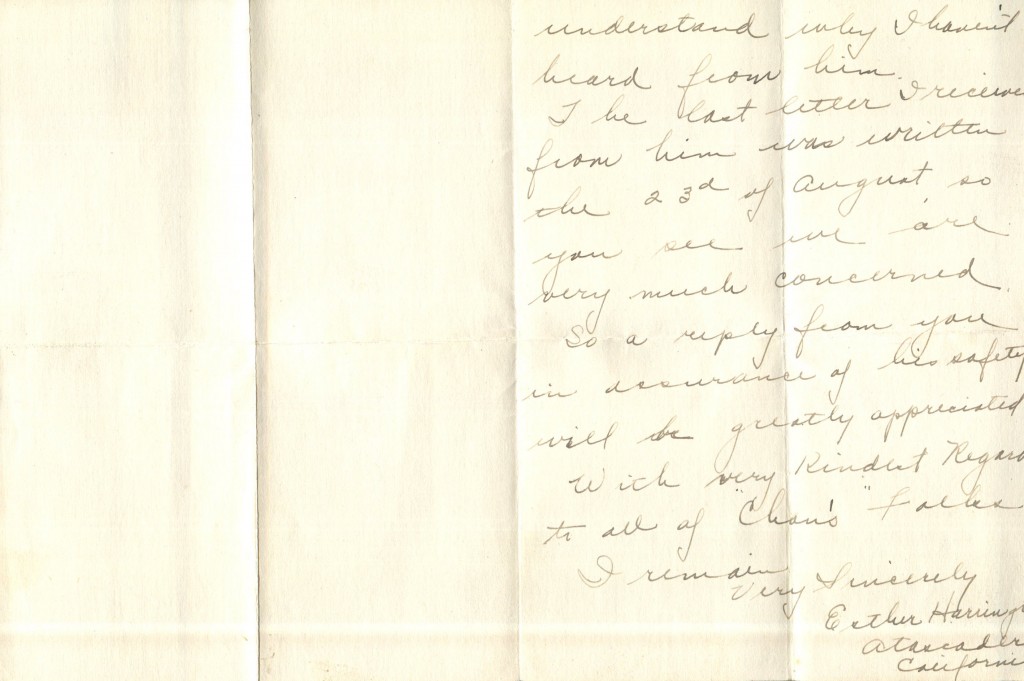 understand why I haven't
heard from him.
The last letter I receive
from him was written
the 23rd of August, so
you see we are
very much concerned.
So a reply from you
in assurance of his safety
will be greatly appreciated
With very Kindest Regard
to all of "Chan's" Folks
I remain
Very Sincerely
Esther Harring
Atascader
Californi